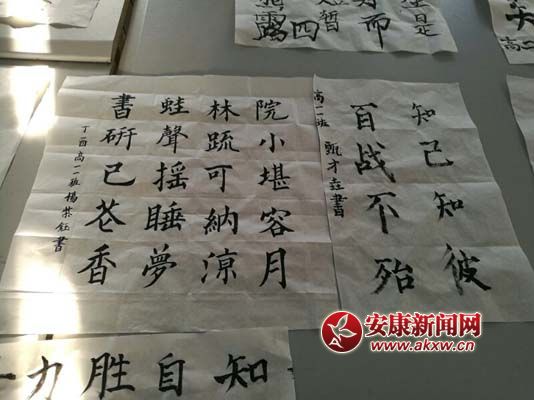 知己知彼
百战不殆
高一班 甄才莊書
院小堪容月
林疏可納涼
蛙聲摇睡夢
書硏已苍香
丁酉高一一班楊
鈺書
露四暂而是
力胜自知
安康新闻网
www.akxw.cn